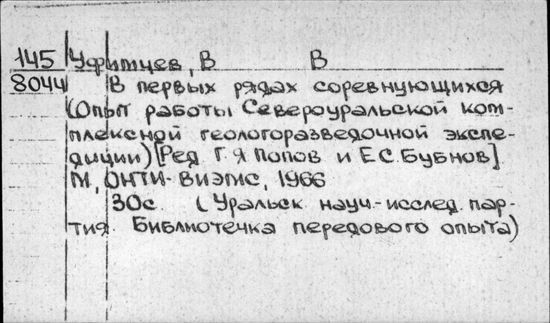 145 Уфимцев, В В
8044 В первых рядах соревнующихся
(Опыт работы Североуральской ком-
плексной геологоразведочной экспе-
диции) [Ред Г. Я Попов и Е С. Бубнов]
М, ОНТИ-ВИЭМС, 1966
30с. (Уральск науч-исслед. пар-
тия. Библиотечка передового опыта)